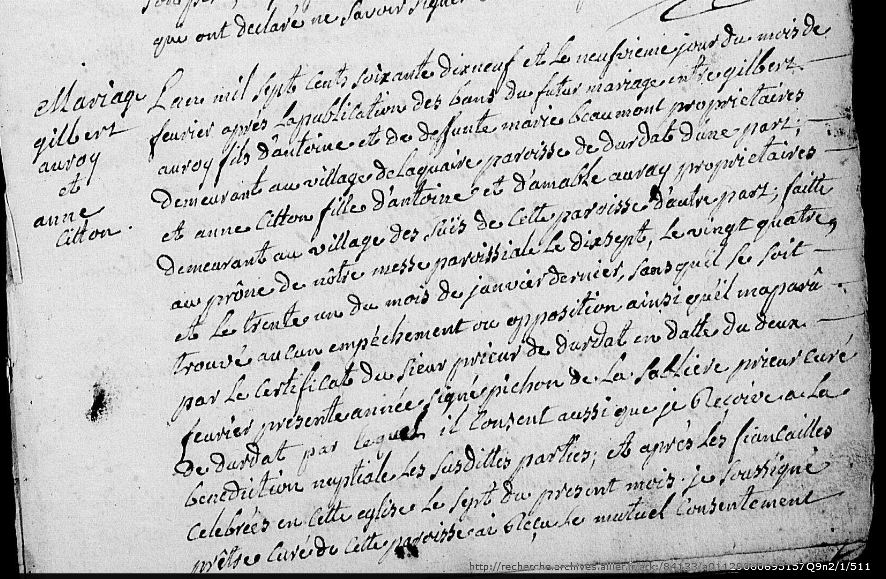 que ont declaré ne savoir signer
Mariage
gilbert
auroy
et
anne
Citton.
Lan mil sept cents soixante dixneuf et le neufvieme jour du mois de
fevrier après la publication des bans du futur mariage entre gilbert
auroy fils d'antoine et de deffunte marie beaumont proprietaires
demeurant au village delaquaire paroisse de durdat dune part;
et anne Citton fille d'antoine et d'amable auroy proprietaires
demeurant au village des suis de cette paroisse d'autre part; faitte
au prône de nôtre messe paroissiale le dixsept, le vingt quatre,
et le trente un du mois de janvier dernier, sans quil se soit
trouvé aucun empêchement ou opposition ainsi quil maparû
par le Certificat du sieur prieur de durdat en datte du deux
fevrier presente année signé pichon de la sabliere prieur curé
de durdat par lequel il consent aussi que je Reçoive a la
benediction nuptiale les susdittes parties; et après les fiancailles
Celebrées en cette eglise le sept du present mois. je soussigné
prêtre curé de cette paroisse ai Reçu le mutuel consentement
http://recherche.archives.allier.fr/ark:/84133/a011280680695157Q9n2/1/511